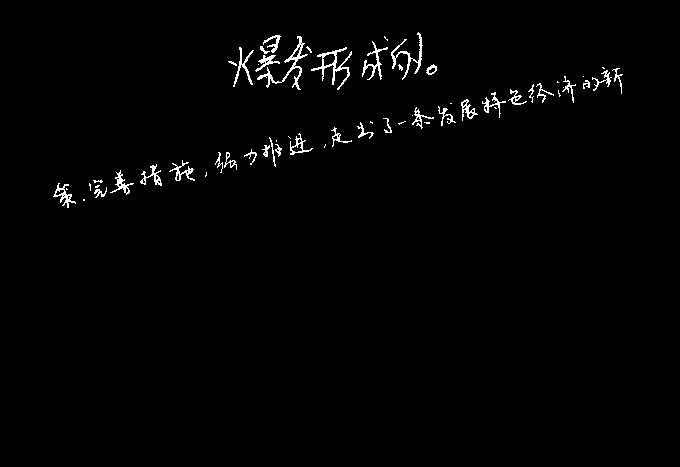 爆发形成的。
策、完善措施,强力推进,走出了一条发展特色经济的新